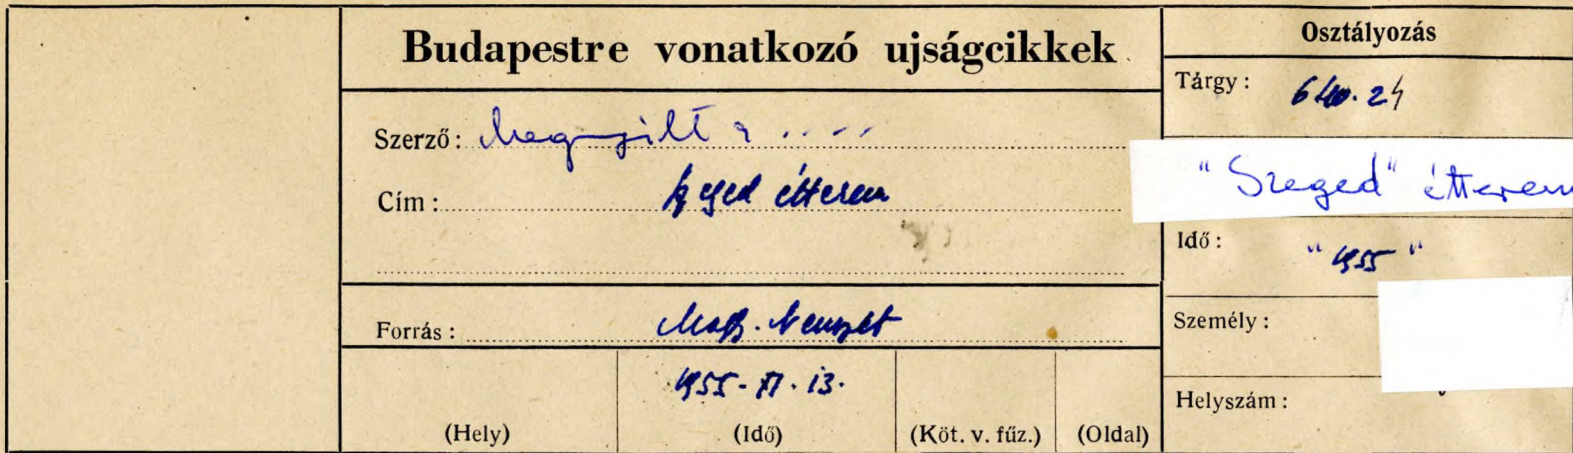 Budapestre vonatkozó ujságcikkek
Szerző: Megnyilt a .....
Cím: Szeged étterem
Forrás: Magy. Nemzet
1955-XI. 13.
(Hely) (Idő) (Köt. v. fűz.) (Oldal)
Osztályozás
Tárgy: 640.24
"Szeged" étterem
Idő: "1955"
Személy:
Helyszám: